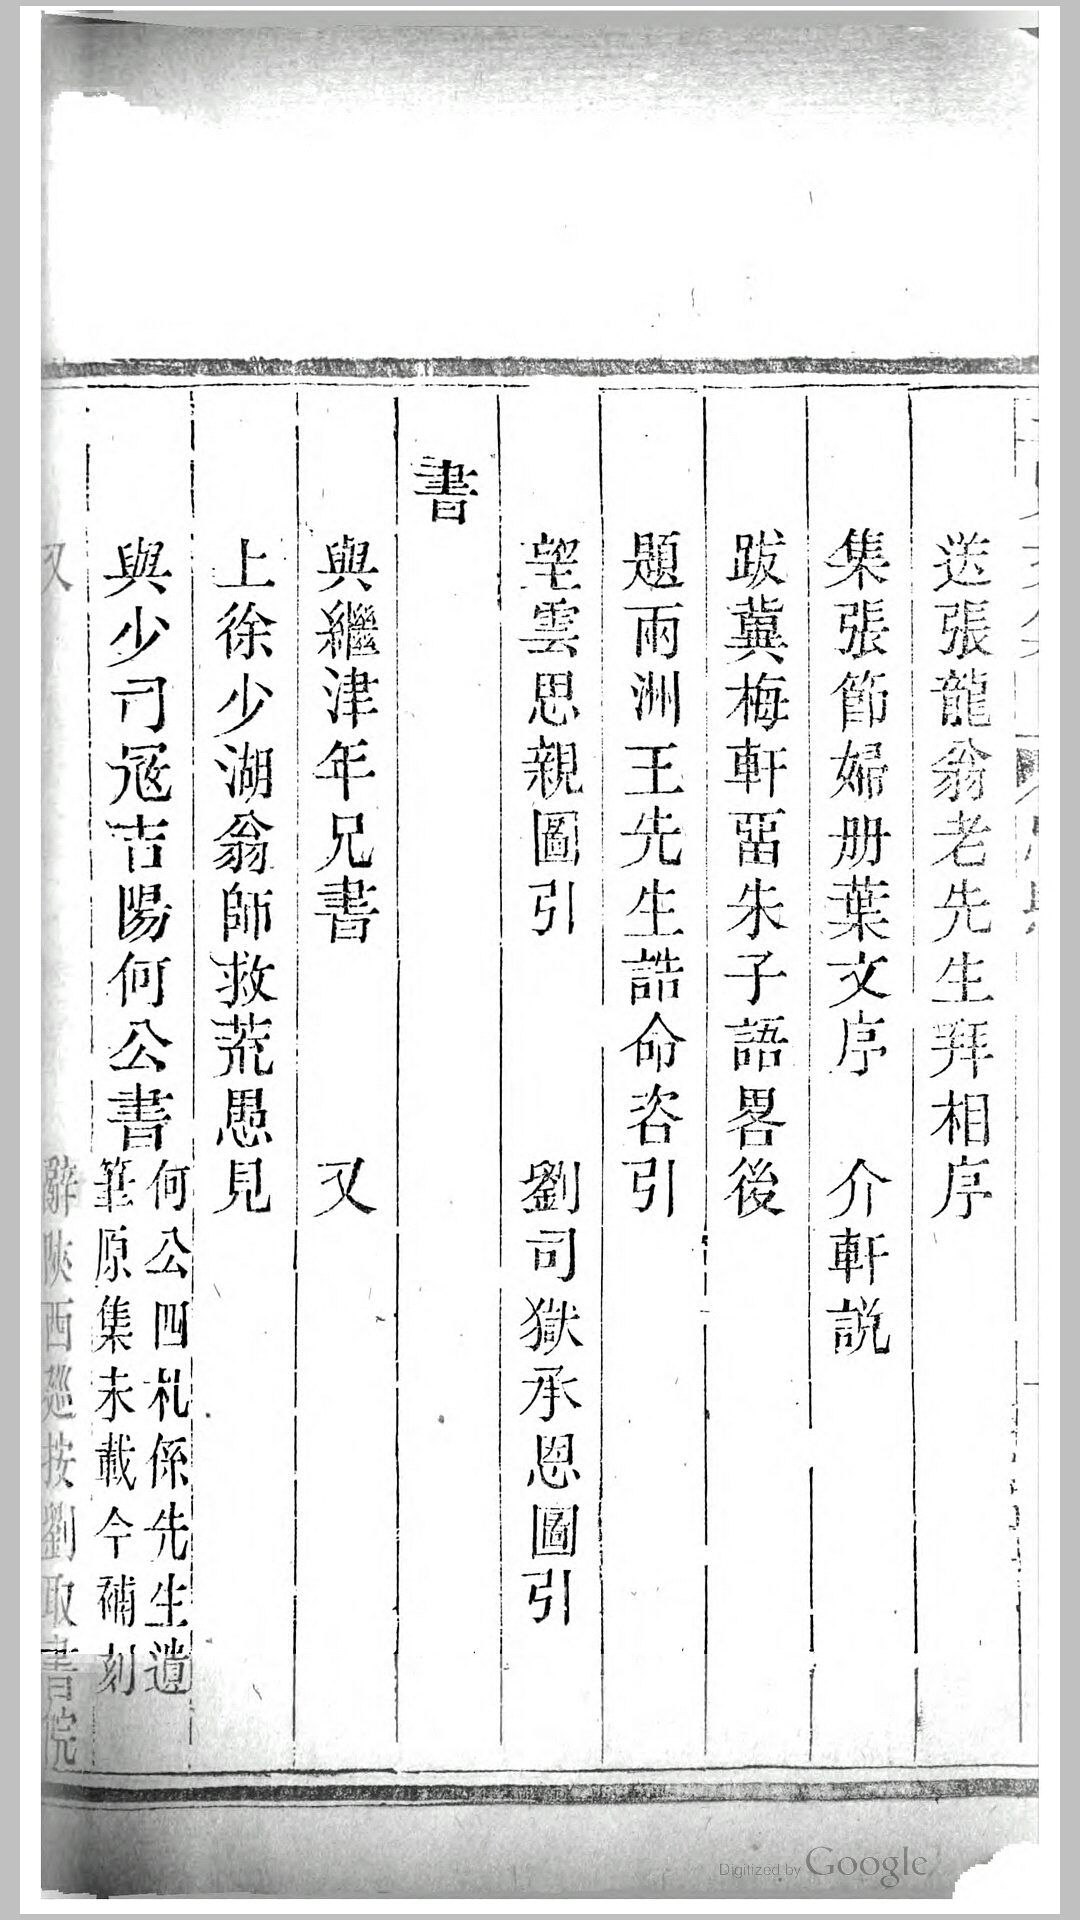 送張龍翁老先生拜相序
集張節婦册葉文序　介軒説
跋冀梅軒畱朱子語畧後
題雨洲王先生誥命咨引
望雲思親圖引　劉司獄承恩圖引
書
與繼津年兄書　又
上徐少湖翁師救荒愚見
與少司冦吉陽何公書
何公四札係先生遺
筆原集未載今補刻
又　辭陝西廵按劉取書院
Digitized by Google